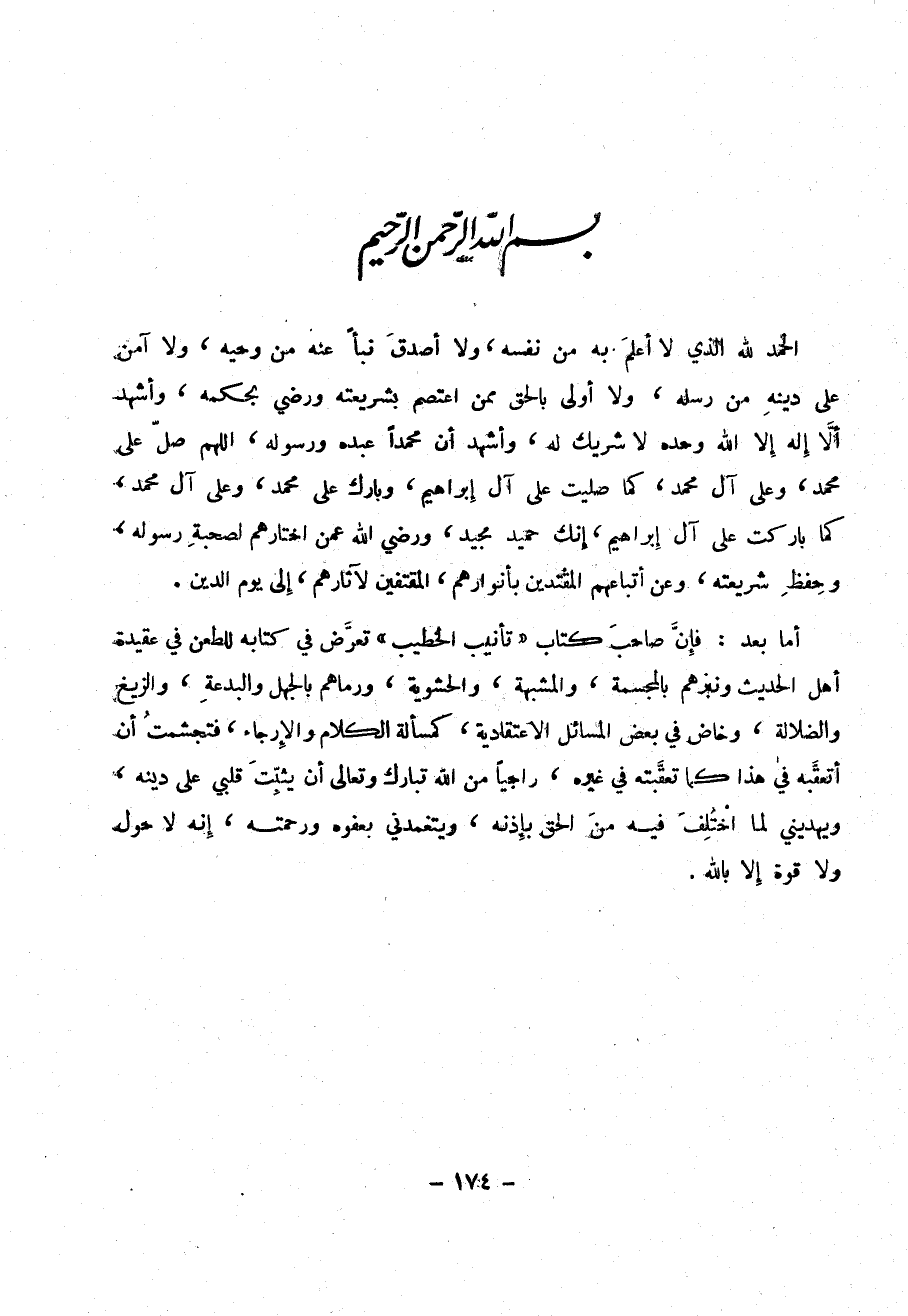 بسم الله الرحمن الرحيم
الحمد لله الذي لا أعلمَ به من نفسه، ولا أصدقَ نبأً عنه من وحيه، ولا آمن
على دينهِ من رسله، ولا أولى بالحق ممن اعتصم بشريعته ورضي بحكمه، وأشهد
ألَّا إله إلا الله وحده لا شريك له، وأشهد أن محمداً عبده ورسوله، اللهم صلّ على
محمد، وعلى آل محمد، كما صليت على آل إبراهيم، وبارك على محمد، وعلى آل محمد،
كما باركت على آل إبراهيم، إنك حميد مجيد، ورضي الله عمن اختارهم لصحبةِ رسوله،
وحِفظِ شريعته، وعن أتباعهم المقتدين بأنوارهم، المقتفين لآثارهم، إلى يوم الدين.
أما بعد : فإنَّ صاحبَ كتاب «تأنيب الخطيب» تعرَّض في كتابه للطعن في عقيدة
أهل الحديث ونبزهم بالمجسمة، والمشبهة، والحشوية، ورماهم بالجهل والبدعةِ، والزيغ
والضلالة، وخاض في بعض المسائل الاعتقادية، كمسألة الكلام والإرجاء، فتجشمتُ أن
أتعقَّبه في هذا كما تعقَّبته في غيره، راجياً من الله تبارك وتعالى أن يثبِّتَ قلبي على دينه،
ويهديني لما اخْتُلِفَ فيه منَ الحق بإذنه، ويتغمدني بعفوه ورحمته، إنه لا حول
ولا قوة إلا بالله.
- ١٧٤ -